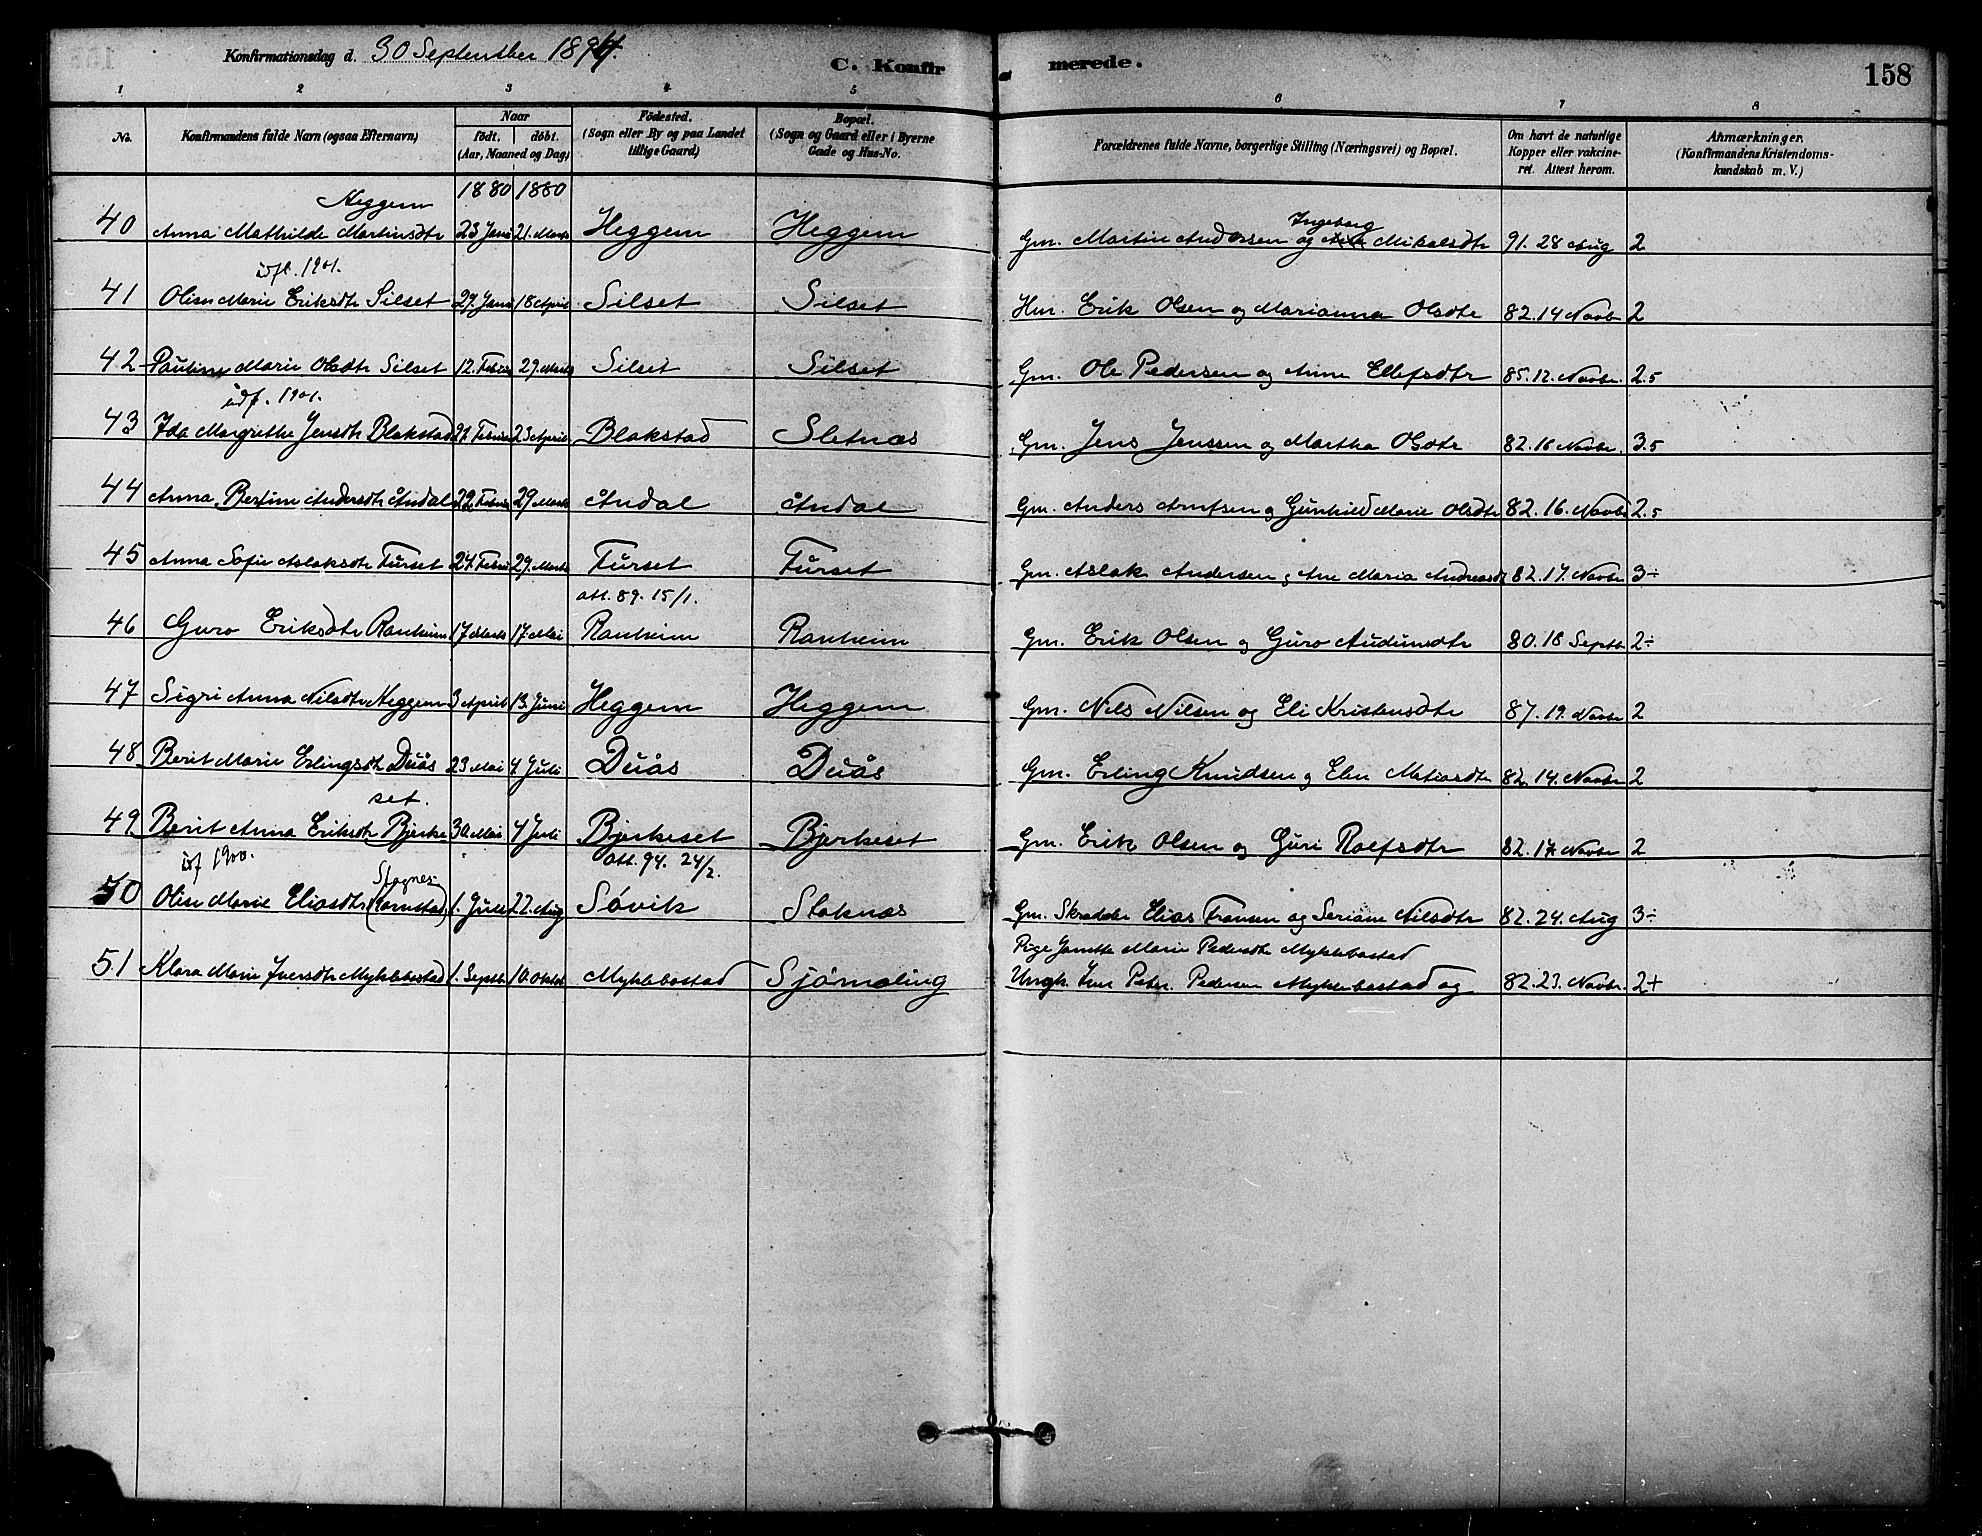 Konfirmationsdag d. 30 September 1894.
C. Konfirmerede.
158
1 2 3 4 5 6 7 8
No. Konfirmandens fulde Navn (ogsaa Efternavn) Naar født. døbt. (Aar, Maaned og Dag) Fødested. (Sogn eller By og paa Landet tillige Gaard) Bopæl. (Sogn og Gaard eller i Byerne Gade og Hus-No. Forældrenes fulde Navne, borgerlige Stilling (Næringsvei) og Bopæl. Om havt de naturlige Kopper eller vakcineret. Attest herom. Anmærkninger. (Konfirmandens Kristendomskundskab m. V.)
Heggem 1880 1880
40 Anna Mathilde Martinsdtr 23 Jan 21. Marts Heggem Heggem Gm. Martin Andersen og Ingeborg Mikalsdtr 91. 28 Aug 2
udfl. 1901.
41 Olise Marie Eriksdtr Silset 29. Jan 18 April Silset Silset Hm. Erik Olsen og Marianna Olsdtr 82. 14 Novbr 2
42 Pauline Marie Olsdtr Silset 12. Febru 29. Marts Silset Silset Gm. Ole Pedersen og Anne Ellefsdtr 85. 12. Novbr. 2.5
udf. 1901.
43 Ida Margrethe Jensdtr Blakstad 21. Februar 23 April Blakstad Sletnæs Gm. Jens Jenssen og Martha Olsdtr 82. 16 Novbr. 3.5
44 Anna Bertine Andersdtr Åndal 22. Febru 29 Marts Åndal Åndal Gm. Anders Arntsen og Gunhild Marie Olsdtr 82. 16. Novbr 2.5
45 Anna Sofie Aslaksdtr Furset 24. Febru 29. Marts Furset Furset Gm. Aslak Andersen og Ane Maria Andreasdt 82. 17. Novbr 3÷
att. 89. 15/1.
46 Guro Eriksdtr Ranheim 17 Marts 17. Mai Ranheim Ranheim Gm. Erik Olsen og Guro Audunsdtr 80. 18 Septb 2÷
47 Sigri Anna Nilsdtr Heggem 3 April 13. Juni Heggem Heggem Gm. Nils Nilsen og Eli Kristensdtr 87. 19. Novbr 2
48 Berit Marie Erlingsdtr Duås 23 Mai 4 Juli Duås Duås Gm. Erling Knudsen og Elen Matiasdtr 82. 14. Novbr 2
set.
49 Berit Anna Eriksdtr Bjerke 30. Mai 4 Juli Bjerkeset Bjerkeset Gm. Erik Olsen og Guri Roelfsdtr 82. 17. Novbr 2
udf 1900. att. 94. 24/2.
50 Oline Marie Eliasdtr (Karnstad) 1. Juli 22. Aug Søvik Stoknæs Gm. Skrædder Elias Fransen og Seriane Nilsdtr 82. 24. Aug 3÷
Pige Janetta Marie Pedersdtr Myklebostad
51 Klara Marie Iversdtr Myklebostad 1. Septb 10. Oktob Myklebostad Sjømæling Ungk. Iver Peter Pedersen Myklebostad og 82. 23. Novbr. 2+